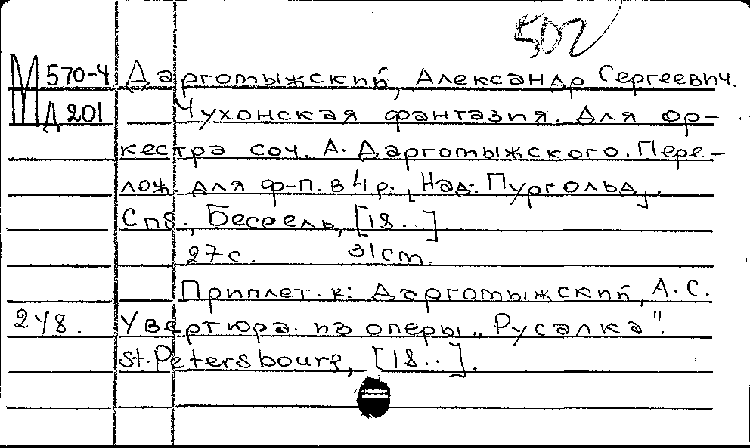 502
М 570-4 Даргомыжский, Александр Сергеевич.
Д 201 Чухонская фантазия. Для ор-
кестра соч. А. Даргомыжского. Пере-
лож. для ф-п. в 4 р. [Над. Пургольд].
Спб., Бессель, [18..]
27 с. 31 cm.
Приплет. к: Даргомыжский, А.С.
248. Увертюра из оперы „Русалка".
St. Petersbourg, [18..].